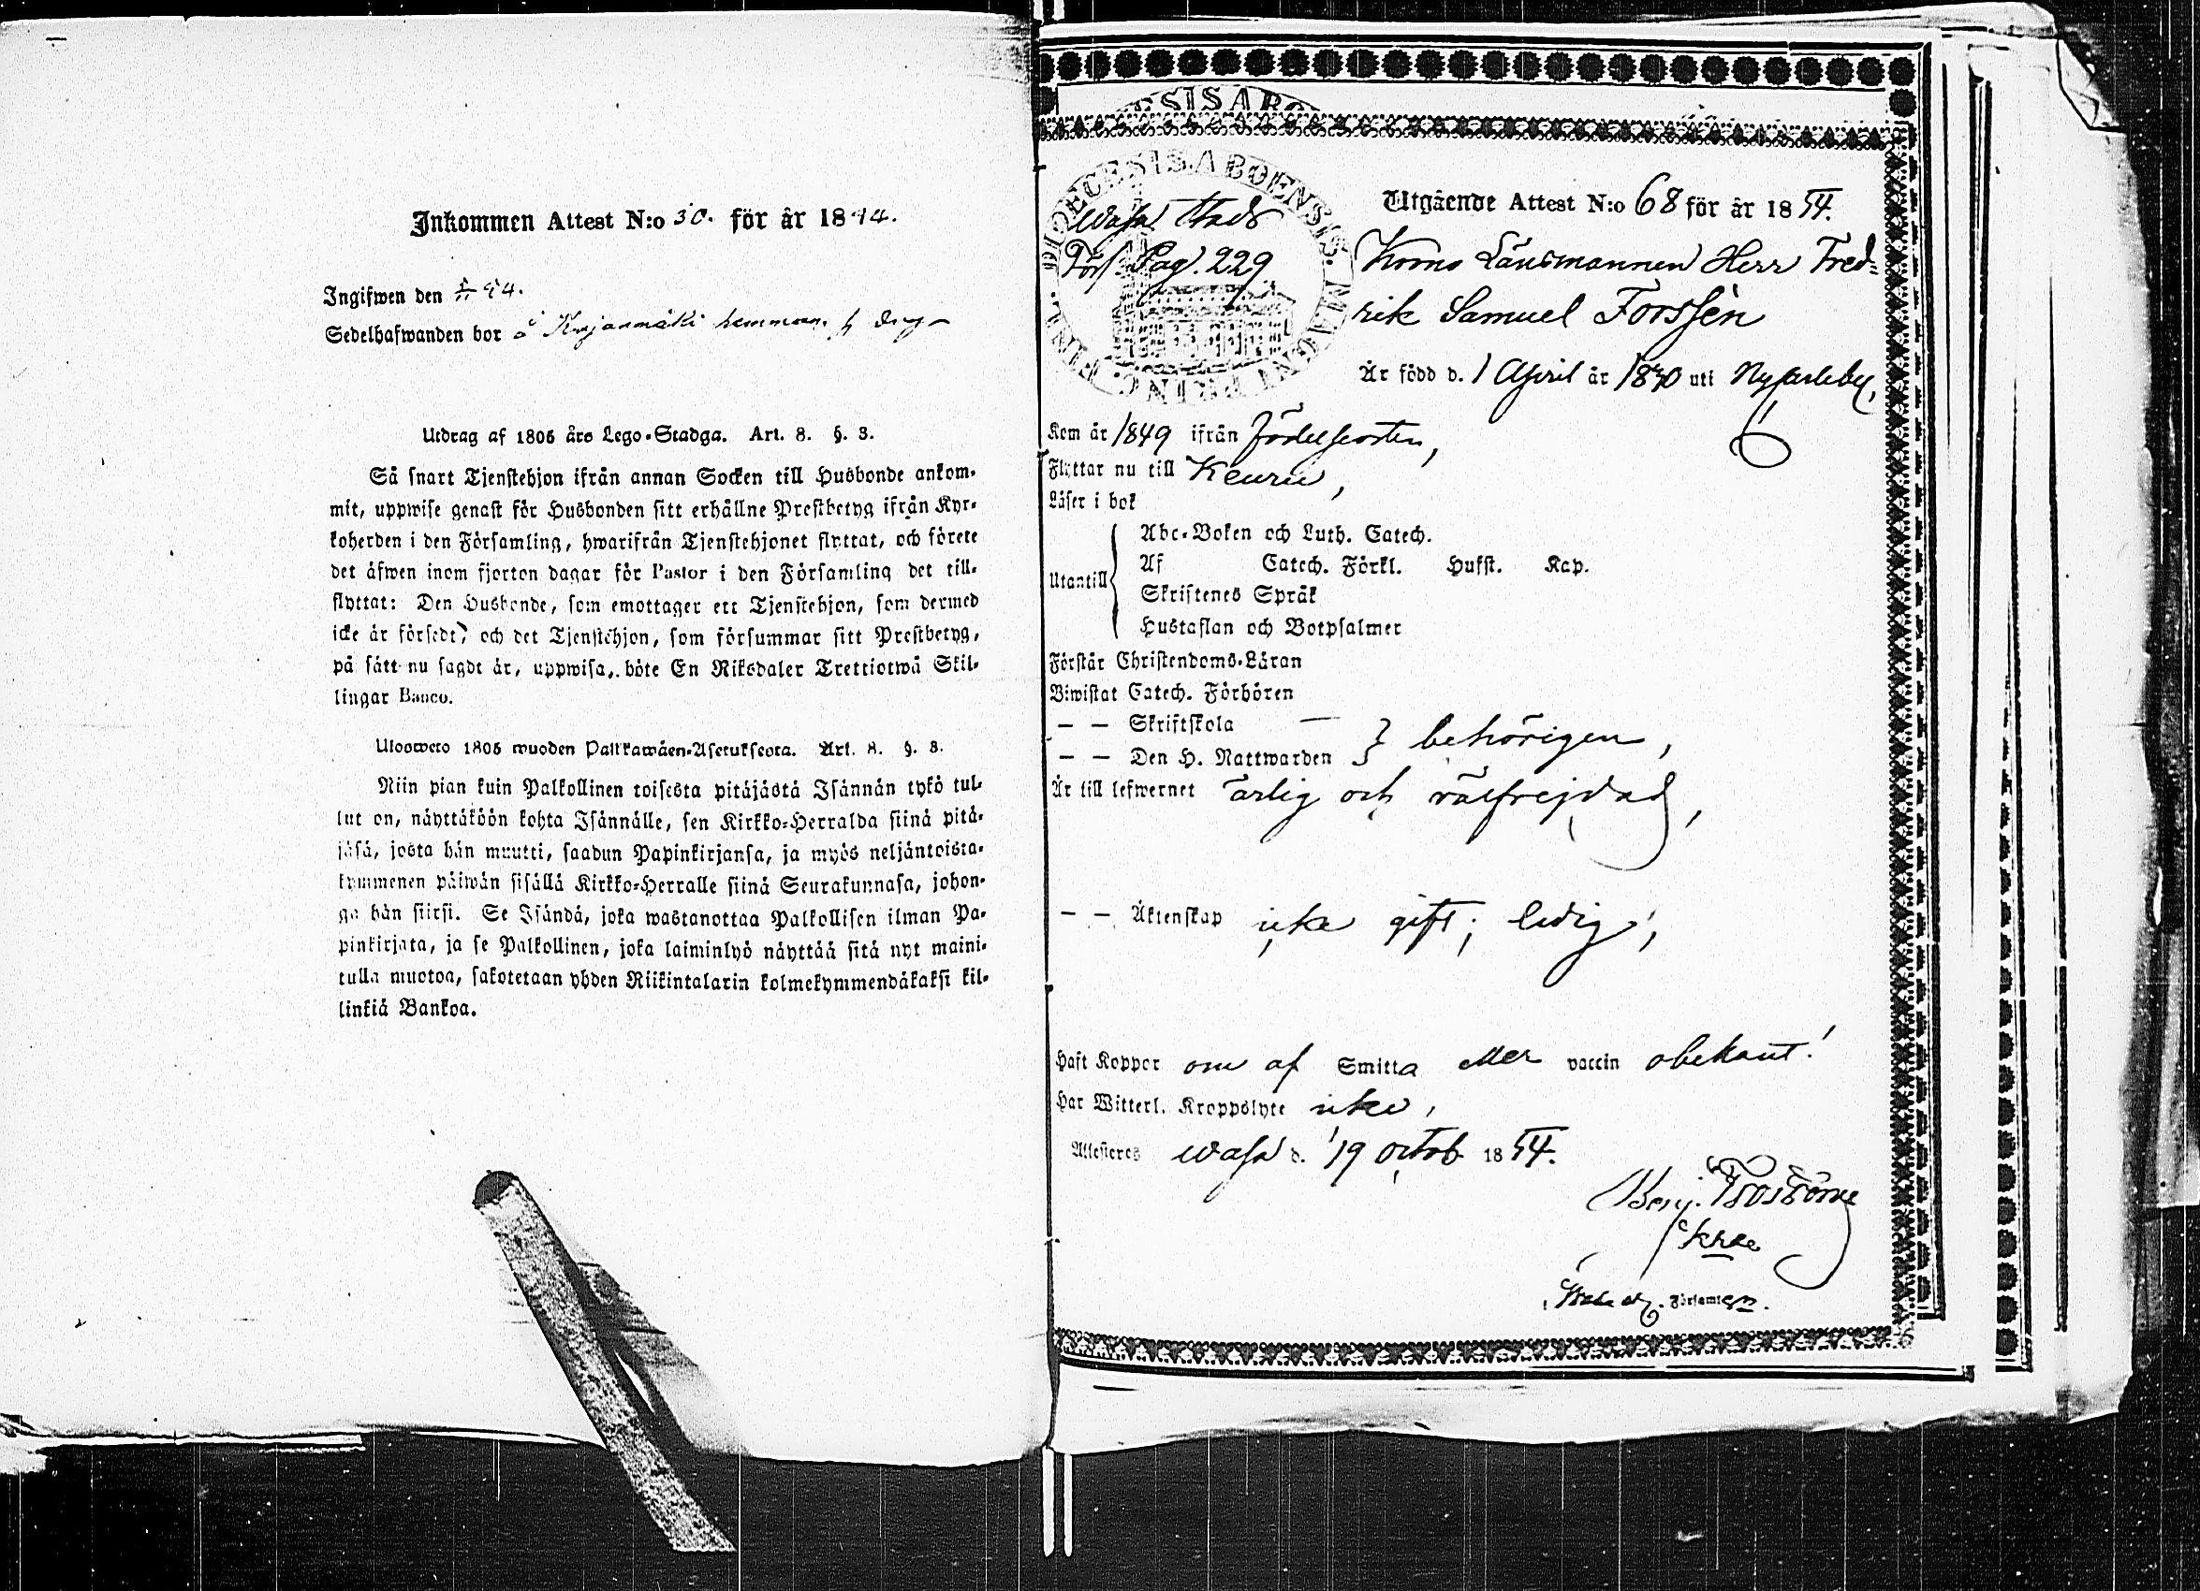 Inkommen Attest N:o 30. för år 18
Ingifwen den
Sedelhafwanden bor å
Utdrag af 1805 års Lego-Stadga. Art. 8. §. 3.
Så snart Tjenstehjon ifrån annan Socken till Husbonde ankom-
mit, uppwise genast för Husbonden sitt erhållne Prestbetyg ifrån Kyr-
koherden i den Församling, hwarifrån Tjenstehjonet flyttat, och förete
det äfwen inom fjorton dagar för Pastor i den Församling det till-
flyttat: Den Husbonde, som emottager ett Tjenstehjon, som dermed
icke är försedt, och det Tjenstehjon, som försummar sitt Prestbetyg,
på sätt nu sagdt är, uppwisa, böte En Riksdaler Trettiotwå Skil-
lingar Banco.
Uloswето 1805 wuoden Palkkawäen-Asetuksesta. Art. 8. §. 3.
Niin pian kuin Palkollinen toisesta pitäjästä Isännän tykö tul-
lut on, näyttäköön kohta Isännälle, sen Kirkko-Herralda siinä pitä-
jäsä, josta hän muutti, saadun Papinkirjansa, ja myös neljäntoista-
kymmenen päiwän sisällä Kirkko-Herralle siinä Seurakunnasa, johon-
ga hän siirsi. Se Isändä, joka wastanottaa Palkollisen ilman Pa-
pinkirjata, ja se Palkollinen, joka laiminlyö näyttää sitä nyt maini-
tulla muotoa, sakotetaan yhden Riikintalarin kolmekymmendäkaksi kil-
linkiä Bankoa.
DIOECESIS ABOENSIS. MAGNI PRINC: FINL.
Wasa Stads
Förs. Pag. 229
Utgående Attest N:o 68 för år 1854.
Krono Länsmannen Herr Fred-
rik Samuel Forssén
Är född d. 1 April år 1830 uti Nycarleby,
Kom år 1849 ifrån födelseorten,
Flyttar nu till Keuru,
Läser i bok
Abc-Boken och Luth. Catech.
Af Catech. Förkl. Hufst. Kap.
Utantill
Skriftenes Språk
Hustaflan och Botpsalmer
Förstår Christendoms-Läran
Biwistat Catech. Förhören
— — Skriftskola —
— — Den H. Nattwarden } behörigen,
Är till lefwernet ärlig och välfrejdad,
— — Äktenskap icke gift; ledig;
Haft Koppor om af Smitta eller vaccin obekant!
Har Witterl. Kroppslyte icke,
Attesteres Wasa d. 19 octob 1854.
Benj.
Församl